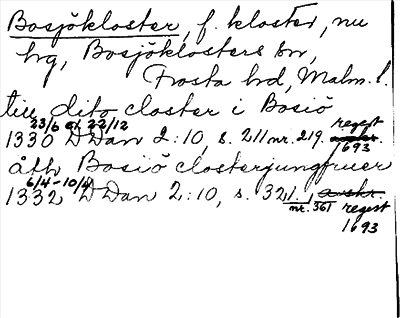 Bosjökloster, f. kloster, nu
hg, Bosjöklosters sn,
Frosta hd, Malm. l.
till dito closter i Bosiö
23/6 22/12 regest
1330 D Dan 2:10, s. 211 nr. 219. avskr. 1693
åth Bosiö closterjungfruer
6/4-10/4
1332 D Dan 2:10, s. 321, avskr.
nr. 361 regest
1693